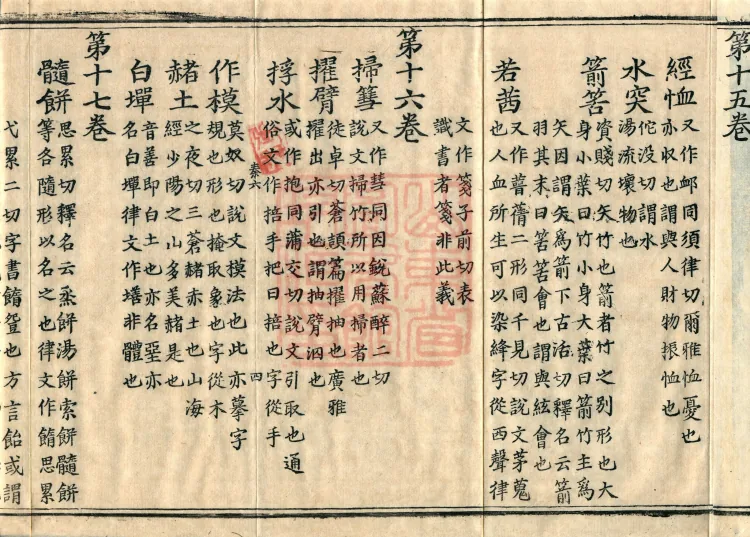 第十五卷
經恤 又作卹同須律切爾雅恤憂也
亦収也謂與人財物振恤也
水突 佗没切謂水
湯流壞物也
箭筈 資賤切矢竹也箭者竹之別形也大
身小葉曰竹小身大葉曰箭竹主爲
矢因謂矢爲箭下古活切釋名云箭
羽其末曰筈筈會也謂與絃會也
若茜 又作蒨二形同千見切說文茅蒐
也人血所生可以染絳字從西聲律
文作箋子前切表
識書者箋非此義
第十六卷
掃篲 又作彗同因銳蘇醉二切
說文掃竹所以用掃者也
擢臂 徒卓切蒼頡篇擢抽也廣雅
擢出亦引也謂抽臂泅也
捊水 或作抱同蒲交切說文引取也通
俗文作掊手把曰掊也字從手
秦六 四
作模 莫奴切說文摸法也此亦摹字
規也形也掩取象也字從木
赭土 之夜切三蒼赭赤土也山海
經少陽之山多美赭是也
白墠 音善即白土也亦名堊亦
名白墠律文作墡非體也
第十七卷
髓餅 思累切釋名云蒸餅湯餅索餅髓餅
等各隨形以名之也律文作䭉思累
弋累二切字書䭉也方言飴或謂